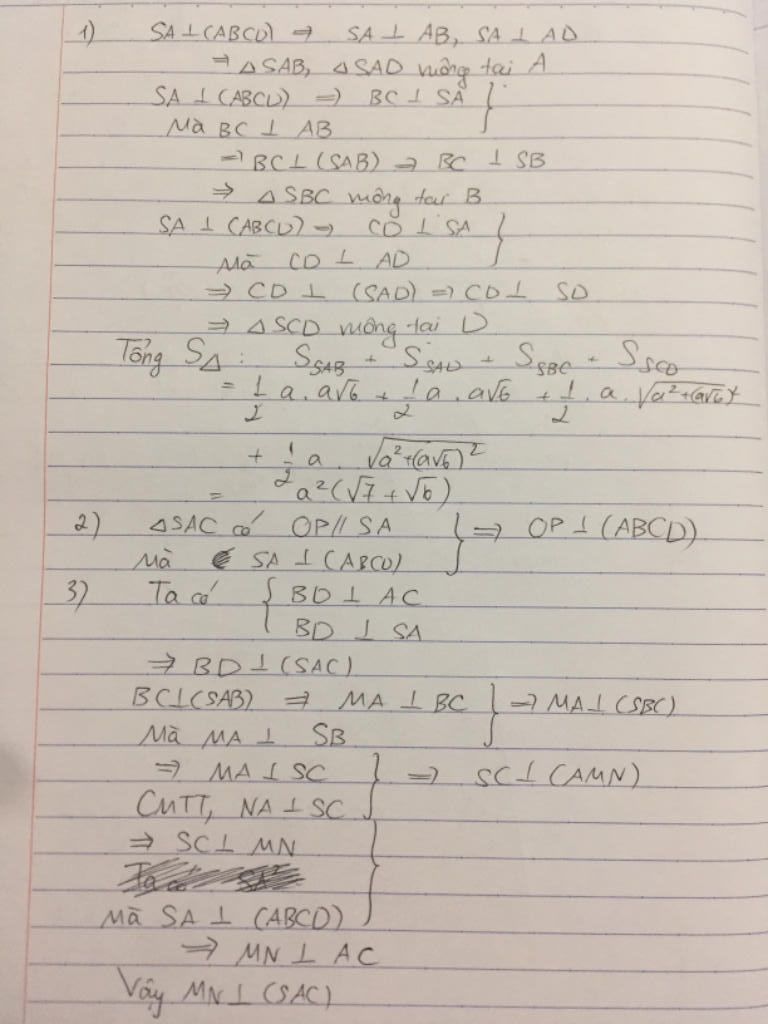 1) SA ⊥ (ABCD) ⇒ SA ⊥ AB, SA ⊥ AD
⇒ △SAB, △SAD vuông tại A
SA ⊥ (ABCD) ⇒ BC ⊥ SA }
Mà BC ⊥ AB
⇒ BC ⊥ (SAB) ⇒ BC ⊥ SB
⇒ △SBC vuông tại B
SA ⊥ (ABCD) ⇒ CD ⊥ SA }
Mà CD ⊥ AD
⇒ CD ⊥ (SAD) ⇒ CD ⊥ SD
⇒ △SCD vuông tại D
Tổng S△ : S_SAB + S_SAD + S_SBC + S_SCD
= 1/2 a . a√6 + 1/2 a . a√6 + 1/2 . a . √(a²+(a√6)²)
+ 1/2 a . √(a²+(a√6)²)
= a²(√7 + √6)
2) △SAC có OP // SA } ⇒ OP ⊥ (ABCD)
Mà SA ⊥ (ABCD)
3) Ta có { BD ⊥ AC
BD ⊥ SA
⇒ BD ⊥ (SAC)
BC ⊥ (SAB) ⇒ MA ⊥ BC } ⇒ MA ⊥ (SBC)
Mà MA ⊥ SB
⇒ MA ⊥ SC } ⇒ SC ⊥ (AMN)
CMTT, NA ⊥ SC
⇒ SC ⊥ MN }
Mà SA ⊥ (ABCD)
⇒ MN ⊥ AC
Vậy MN ⊥ (SAC)